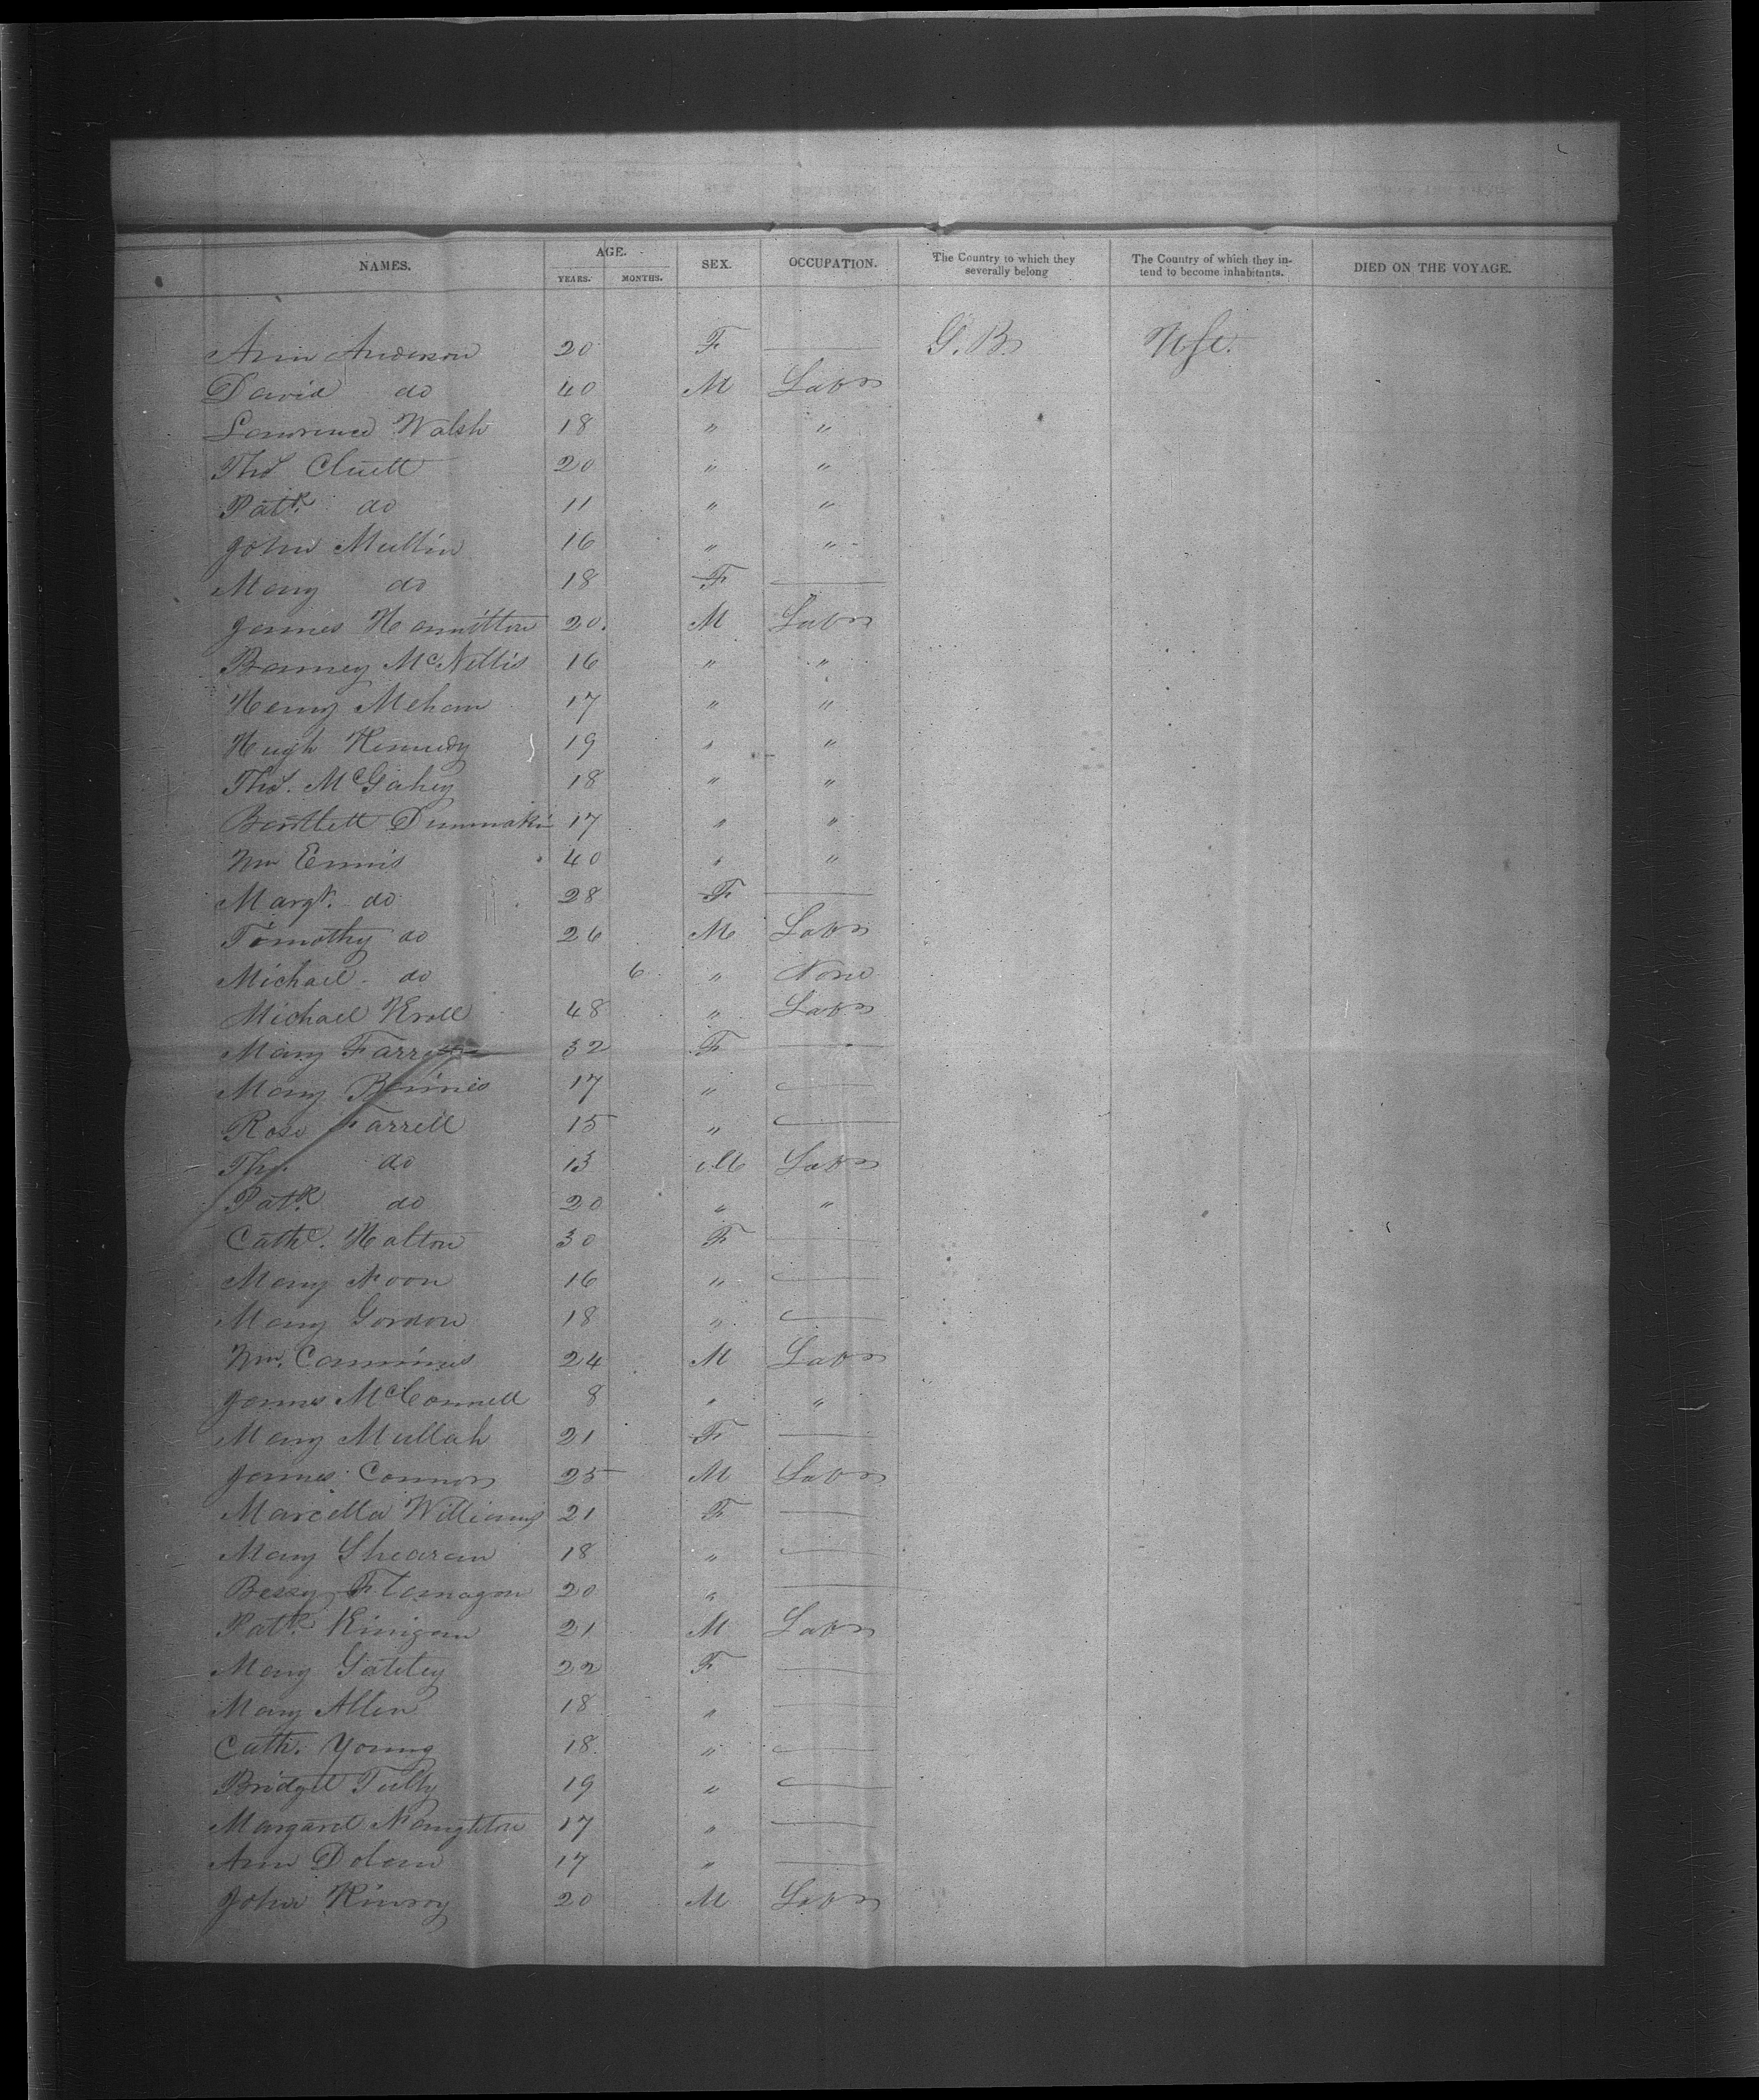 NAMES. AGE. SEX. OCCUPATION. The Country to which they severally belong The Country of which they intend to become inhabitants. DIED ON THE VOYAGE.
YEARS. MONTHS.
Ann Anderson 20 F — G. B.
David do 40 M Labr
Lawrence Walsh 18 " "
Thos Cluett 20 " "
Patk. do 11 " "
John Mullin 16 " "
Mary do 18 F —
James Hamilton 20. M Labr
Barney McNellis 16 " "
Henry Mehan 17 " "
Hugh Kennedy 19 " "
Thos. McGahey 18 " "
Bartlett 17 " "
Wm Ennis 40 " "
Margt. do 28 F —
Timothy do 26 M Labr
Michael do 6 " None
Michael Kroll 48 " Labr
Mary 32 F —
Mary 17 " —
Rose Farrell 15 " —
Tho. do 13 M Labr
Patk do 20 " "
Cathe. Halton 30 F —
Mary Noon 16 " —
Mary Gordon 18 " —
Wm. Cammines 24 M Labr
James McConnell 8 " "
Mary Mullah 21 F —
James Connor 25 M Labr
Marcella Williams 21 F —
Mary Shearan 18 " —
Bessy Flanagan 20 " —
Patk. Kinigan 21 M Labr
Mary Gateley 22 F —
Mary Allen 18 " —
Cath. Young 18. " —
Bridget Tully 19 " —
Margaret Naughton 17 " —
Ann Dolan 17 " —
John Kinroy 20 M Labr